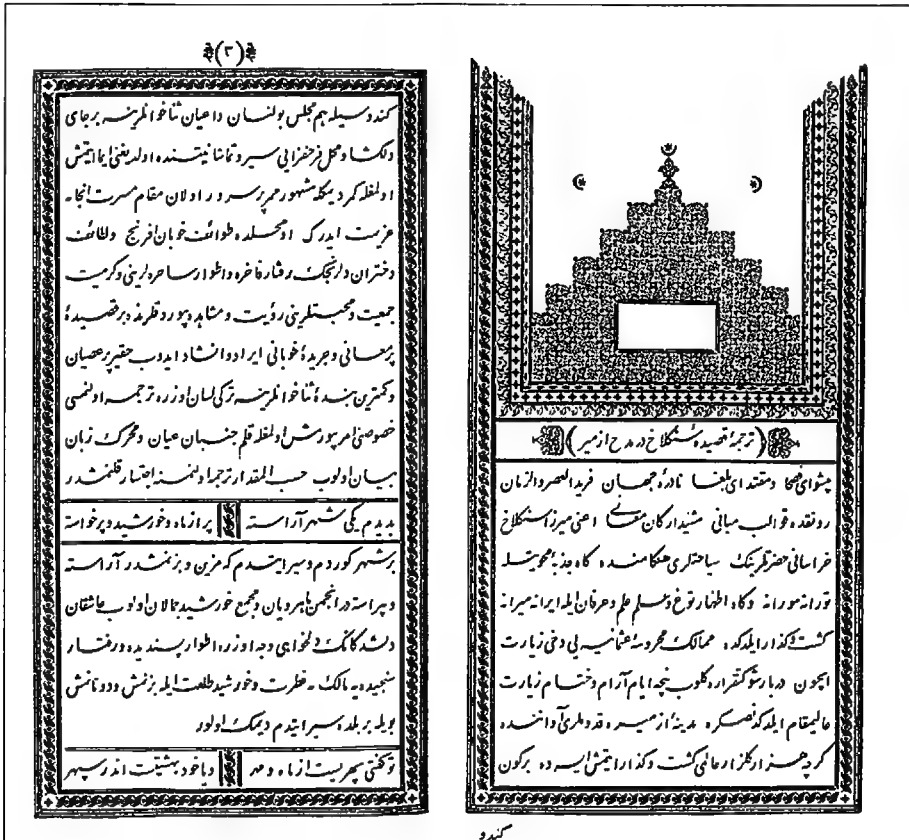 (ترجمهٔ قصیدهٔ سنکلاخ در مدح ازمیر)
پیشوای فصحا ومقتدای بلغا نادرهٔ جهان فرید العصر والزمان
رونقده قوالب مبانی مشیدارکان معانی اعنی میرزا سنکلاخ
خراسانی حضرتلرینک سیاحتلری هنکامنده کاه جذبهٔ محویتله
تورانه مورانه وکاه اظهار نوغ وسلم علم وعرفان ایله ایرانه میرانه
کشت وکذار ایلدکده ممالک محروسهٔ عثمانیه یی دخی زیارت
ایچون دربار شوکتقراره کلوب نیجه ایام آرام وختام زیارت
عالیمقام ایلدکدنصکره مدینهٔ ازمیره قدوملری آواننده
کرچه هزار کلزار عالمی کشت وکذار ایتمش ایسه ده برکون
کندو
(۲)
کندوسیله هم مجلس بولنان داعیان ثناخوانلرینه برجای
دلکشا ومحل فرحفزایی سیر وتماشا نیتنده اولدیغنی ایما ایتمش
اولمغله کردیمکله مشهور ممرپر سرور اولان مقام مسرت انجا۔
عزیمت ایدرک اومحلده طوائف خوبان افرنج ولطائف
دختران دلرنجک رفتار فاخره واطوار ساحره لرینی وکرمیت
جمعیت ومحبتلرینی رؤیت ومشاهده بیوردقلرنده برقصیدهٔ
پرمعانی وجریدهٔ خوبانی ایراد وانشاد ایدوب حقیر پرعصیان
وکمترین بندهٔ ثناخوانلرینه ترکی لسان اوزره ترجمه اولنمسی
خصوصنی امر بیورمش اولمغله قلم جنبان عیان ومحرک زبان
بیان اولوب حسب المقدار ترجمه اولنمسنه ابتدار قلنمشدر
بدیدم یکی شهر آراسته پر از ماه وخورشید وپرخواسته
برشهر کوردم وسیر ایتدم که مزین وبزنمشدر آراسته
وپیراسته در انجمن ماهرویان ومجمع خورشید جمالان اولوب عاشقان
دلشدکانک دلخواهی وجه اوزره اطوار پسندیده ورفتار
سنجیده یه مالک مه فطرت وخورشید طلعت ایله بزنمش ودونانمش
بویله بر بلده سیر ایتدم دیمک اولور
توکفتی سپهریست از ماه ومهر ویاخود بهشتیست اندر سپهر